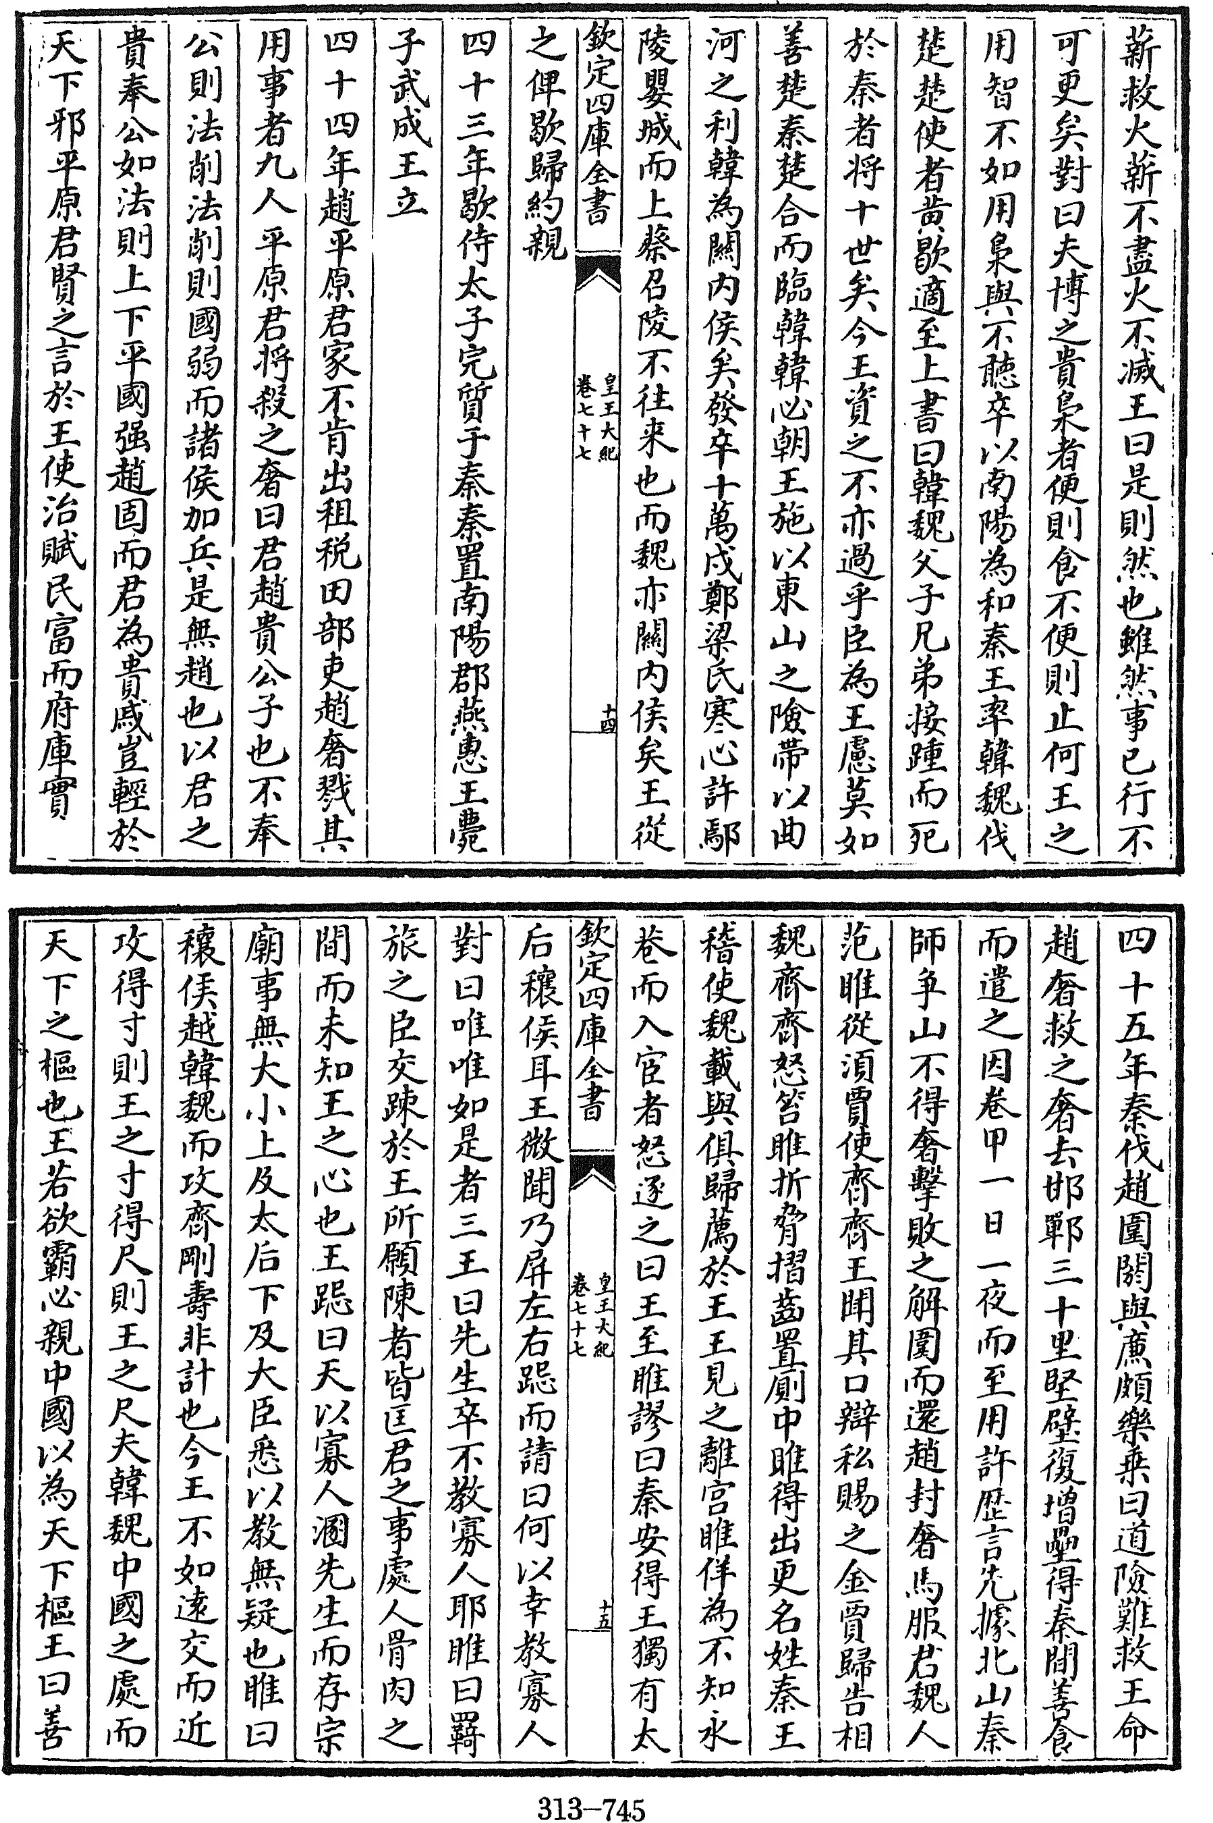 薪救火薪不盡火不滅王曰是則然也雖然事已行不
可更矣對曰夫博之貴梟者便則食不便則止何王之
用智不如用梟與不聽卒以南陽為和秦王率韓魏伐
楚楚使者黄歇適至上書曰韓魏父子兄弟接踵而死
於秦者将十世矣今王資之不亦過乎臣為王慮莫如
善楚秦楚合而臨韓韓必朝王施以東山之險帶以曲
河之利韓為關内侯矣發卒十萬戍鄭梁氏寒心許鄢
陵嬰城而上蔡召陵不往来也而魏亦關内侯矣王從
欽定四庫全書
皇王大紀
卷七十七
十四
之俾歇歸約親
四十三年歇侍太子完質于秦秦置南陽郡燕惠王薨
子武成王立
四十四年趙平原君家不肯出租税田部吏趙奢戮其
用事者九人平原君将殺之奢曰君趙貴公子也不奉
公則法削法削則國弱而諸侯加兵是無趙也以君之
貴奉公如法則上下平國强趙固而君為貴戚豈輕於
天下邪平原君賢之言於王使治賦民富而府庫實
四十五年秦伐趙圍閼與亷頗樂乗曰道險難救王命
趙奢救之奢去邯鄲三十里堅壁復增壘得秦間善食
而遣之因卷甲一日一夜而至用許歷言先據北山秦
師争山不得奢擊敗之解圍而還趙封奢馬服君魏人
范睢從湏賈使齊齊王聞其口辯私賜之金賈歸告相
魏齊齊怒笞睢折脅摺齒置厠中睢得出更名姓秦王
稽使魏載與俱歸薦於王王見之離宫睢佯為不知永
巷而入宦者怒逐之曰王至睢謬曰秦安得王獨有太
欽定四庫全書
皇王大紀
卷七十七
十五
后穰侯耳王微聞乃屏左右跽而請曰何以幸教寡人
對曰唯唯如是者三王曰先生卒不教寡人耶睢曰羇
旅之臣交踈於王所願陳者皆匡君之事處人骨肉之
間而未知王之心也王跽曰天以寡人溷先生而存宗
廟事無大小上及太后下及大臣悉以教無疑也睢曰
穰侯越韓魏而攻齊剛壽非計也今王不如逺交而近
攻得寸則王之寸得尺則王之尺夫韓魏中國之處而
天下之樞也王若欲霸必親中國以為天下樞王曰善
313-745